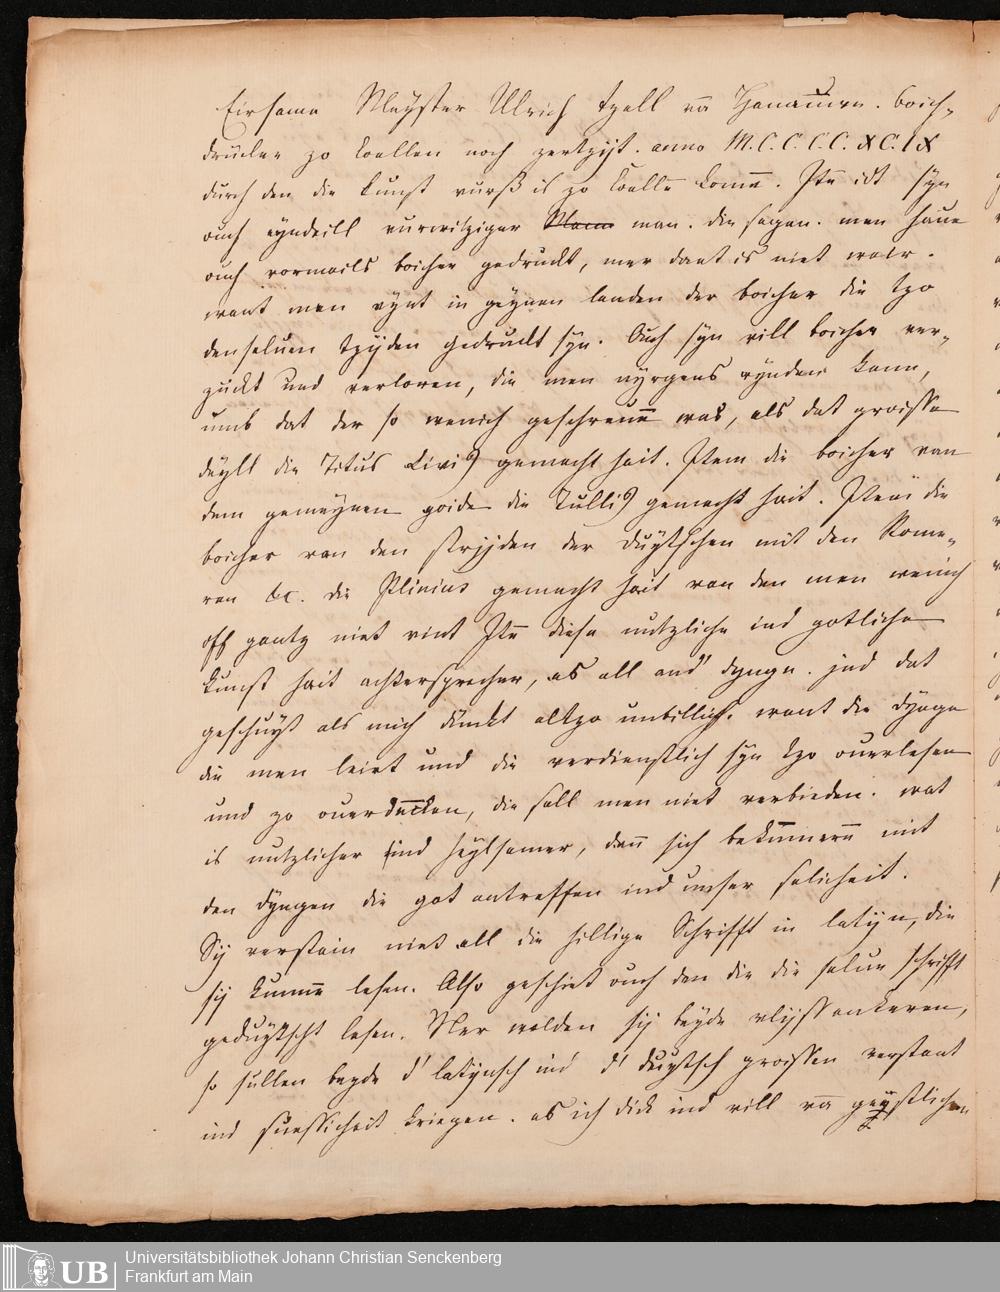 Eirsame Meyster Ulrich tzell vā Hanauwe. boich-
drücker zo Coellen noch zertzijt. anno M.C.C.C.C.XC.IX
durch den die kunst vurß is zo Coellē komē. Itē idt syn
ouch eyndeill vurwitziger man. die sagen. men haue
ouch vormails boicher gedruckt, mer dat is niet wair.
want men vynt in geynen landen der boicher die tzo
denseluen tzijden gedruckt syn. Ouch syn vill boicher ver-
zuckt und verloren, die men nyrgens vynden kann,
umb dat der so wenich geschreuē was, als dat groisse
deyll die Titus Livi9 gemacht hait. Item die boicher van
dem gemeynen goide die Tulli9 gemacht hait. Item die
boicher van den strijden der Duytschen mit den Rome-
ren &c. die Plinius gemacht hait van den men weinich
off gantz niet vint Itē diese nutzliche ind gotliche
kunst hait achtersprecher, as all and' dynge. jnd dat
geschuyt als mich dunckt altzo unbillich. want die dynge
die men leirt und die verdienstlich syn tzo ouerlesen
und zo ouerdencken, die sall men niet verbieden. wat
is nutzlicher ind heylsamer, dan sich bekūmerē mit
den dyngen die got antreffen ind unser selicheit.
Sij verstain niet all die hillige Schrifft in latijn, die
sij kunnē lesen. Also geschiet ouch den die die selue schrifft
geduytscht lesen. Mer wolden sij beyde vlijss ankeren,
so sullen beyde d' latijnsch ind d' duytsch groissen verstant
ind suessicheit kriegen. as ich dick ind vill vā geystlichen
Universitätsbibliothek Johann Christian Senckenberg
Frankfurt am Main
UB